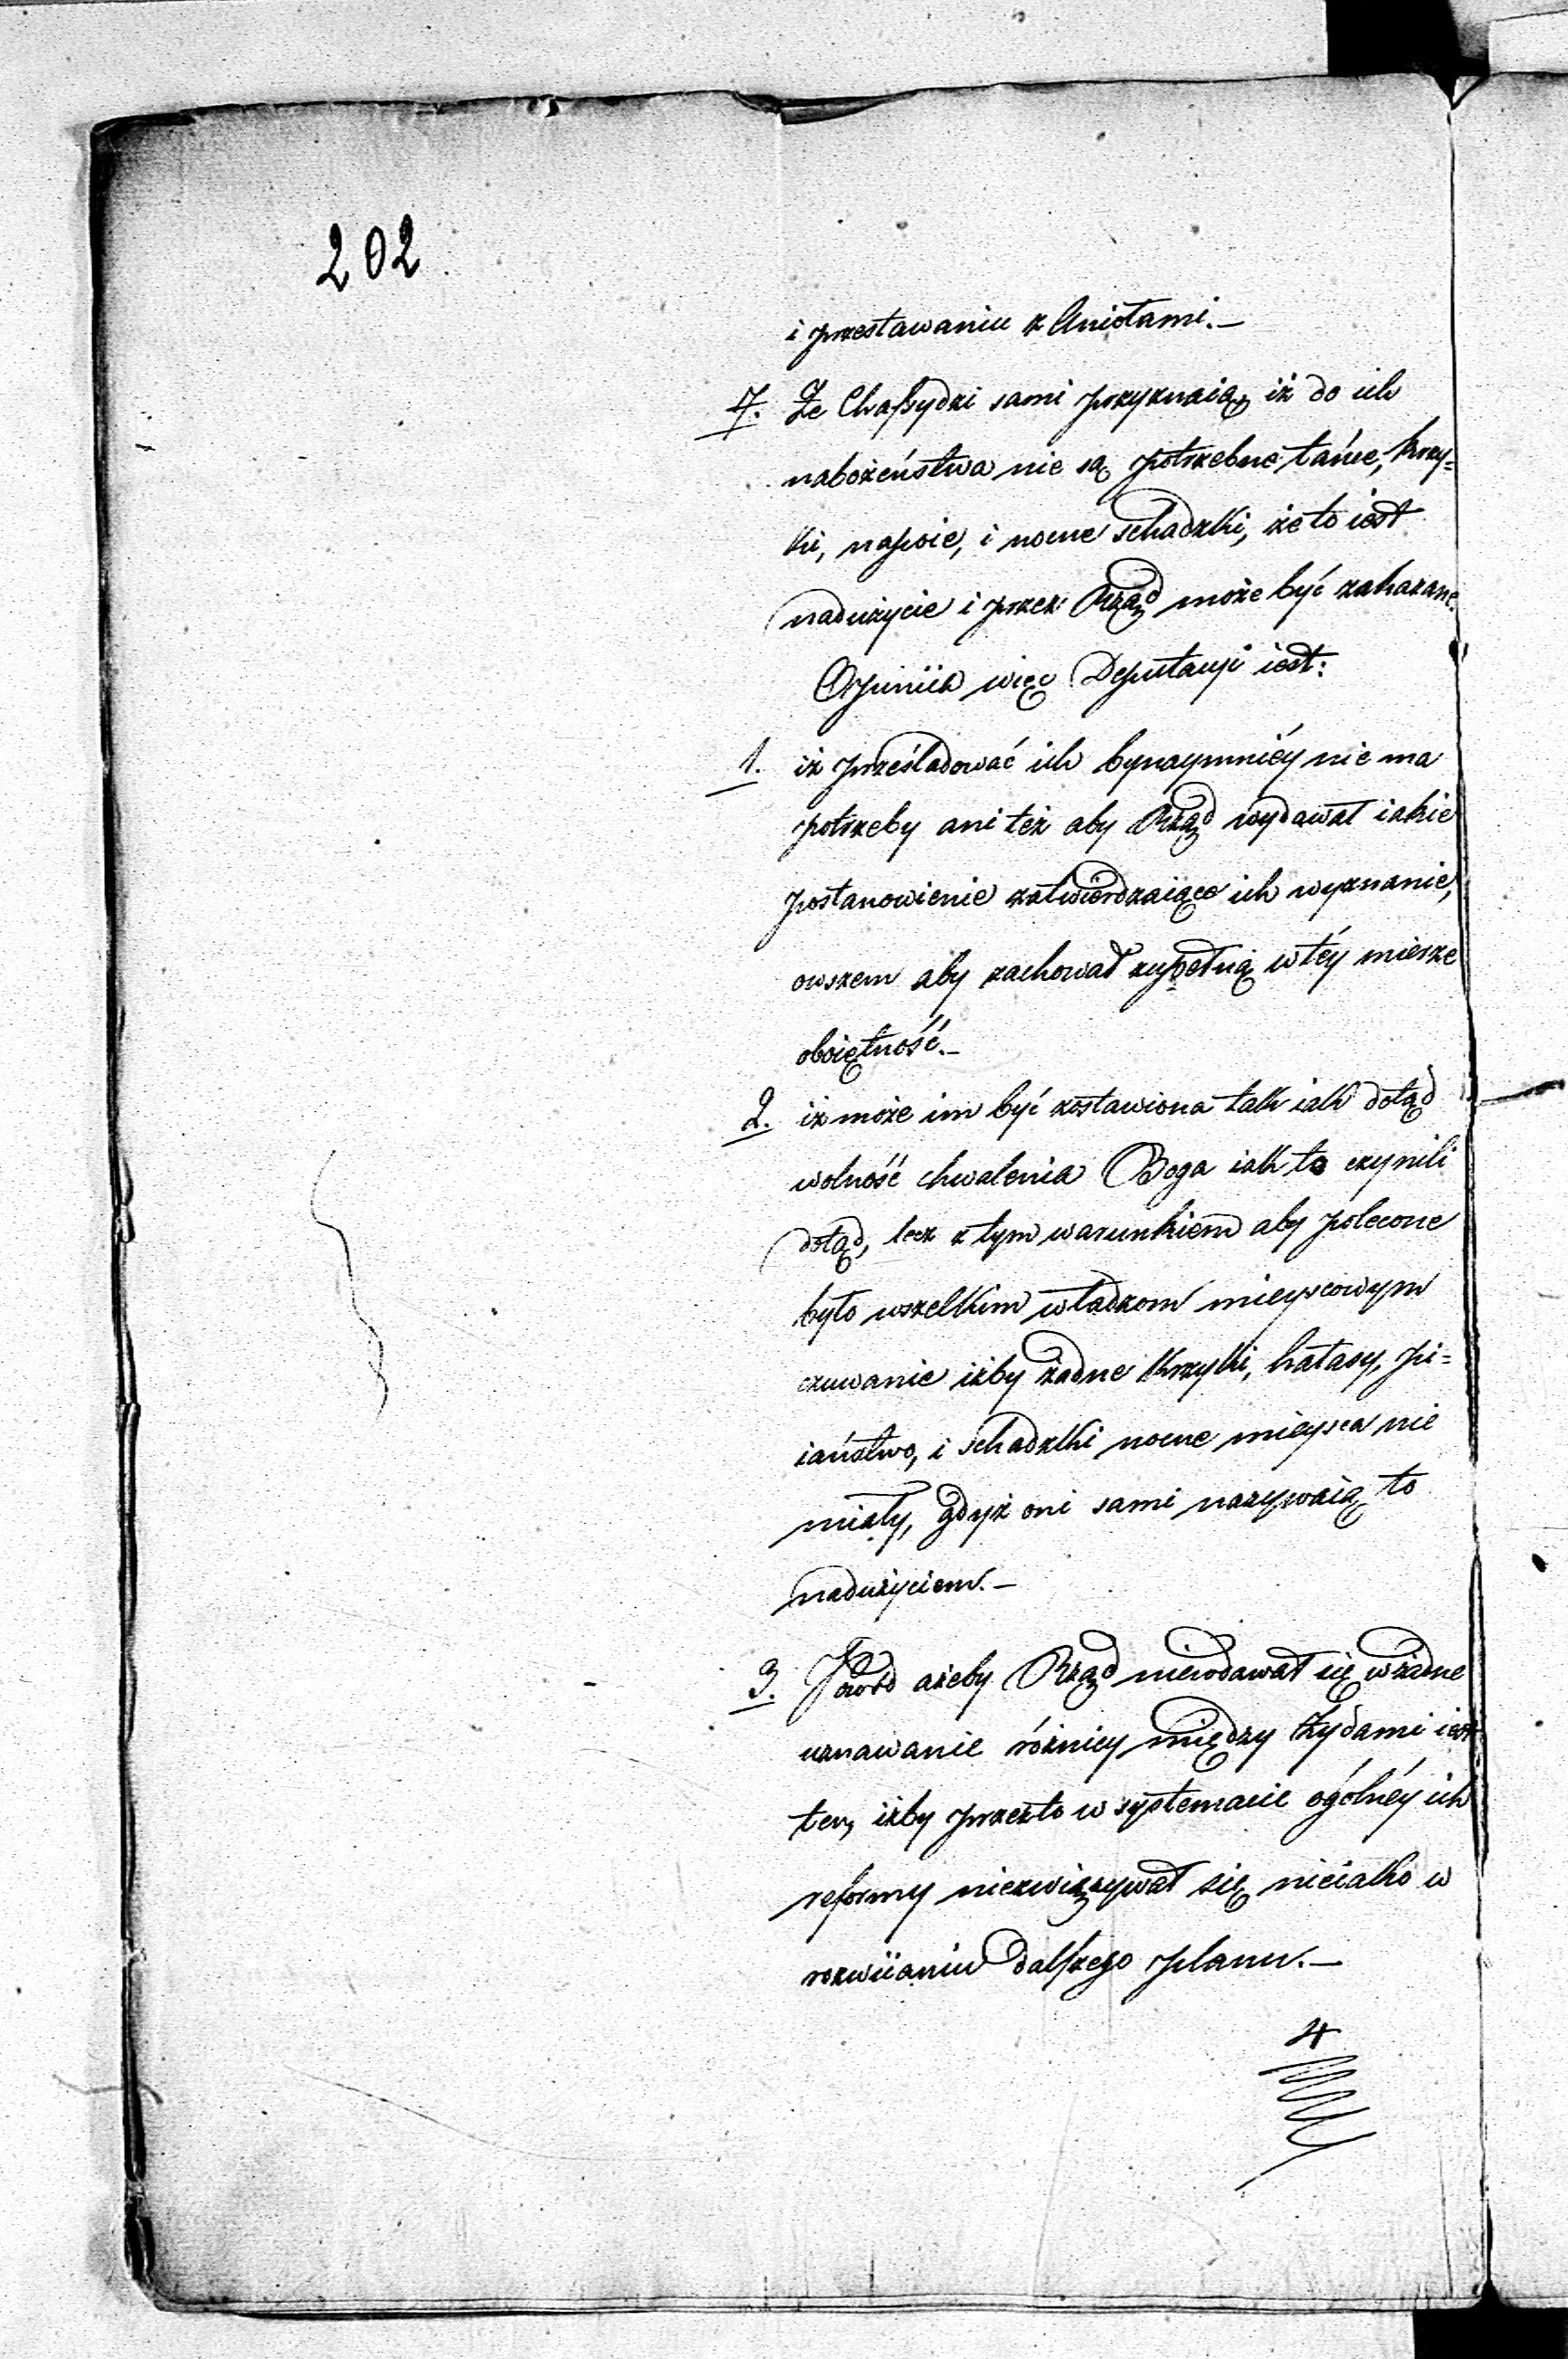 202
i przestawaniu z Aniołami.—
7. Że Chassydzi sami przyznaią iż do ich
nabożeństwa nie są potrzebne tańce, krzy=
ki, napoie, i nocne schadzki, że to iest
nadużycie i przez Rząd może być zakazane.
Opiniia więc Deputacyi iest:
1. iż prześladować ich bynaymniéy nie ma
potrzeby ani też aby Rząd wydawał iakie
postanowienie zatwierdzaiące ich wyznanie,
owszem aby zachował zupełną w téy mierze
oboiętność.—
2. iż może im być zostawiona tak iak dotąd
wolność chwalenia Boga iak to czynili
dotąd, lecz z tym warunkiem aby polecone
było wszelkim władzom mieyscowym
czuwanie iżby żadne krzyki, hałasy, pi=
iaństwo, i schadzki nocne mieysca nie
miały, gdyż oni sami nazywaią to
nadużyciem.—
3. Powód ażeby Rząd niewdawał się w żadne
uznawanie różnicy między Żydami iest
ten, iżby przezto w systemacie ogólnéy ich
reformy niezwiązywał się nieiako w
rozwiianiu dalszego planu.—
4